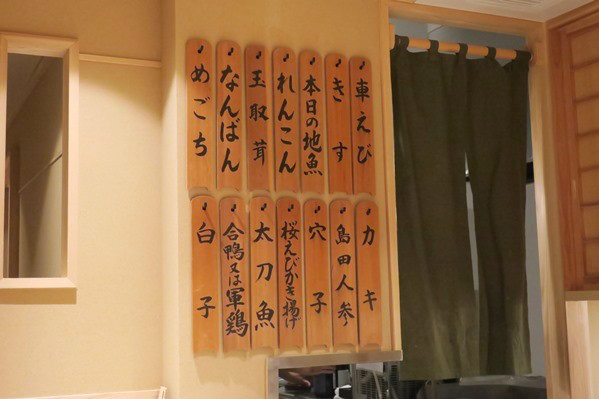 車えび
きす
本日の地魚
れんこん
玉取茸
なんばん
めごち
カキ
島田人参
穴子
桜えびかき揚げ
太刀魚
合鴨又は軍鶏
白子